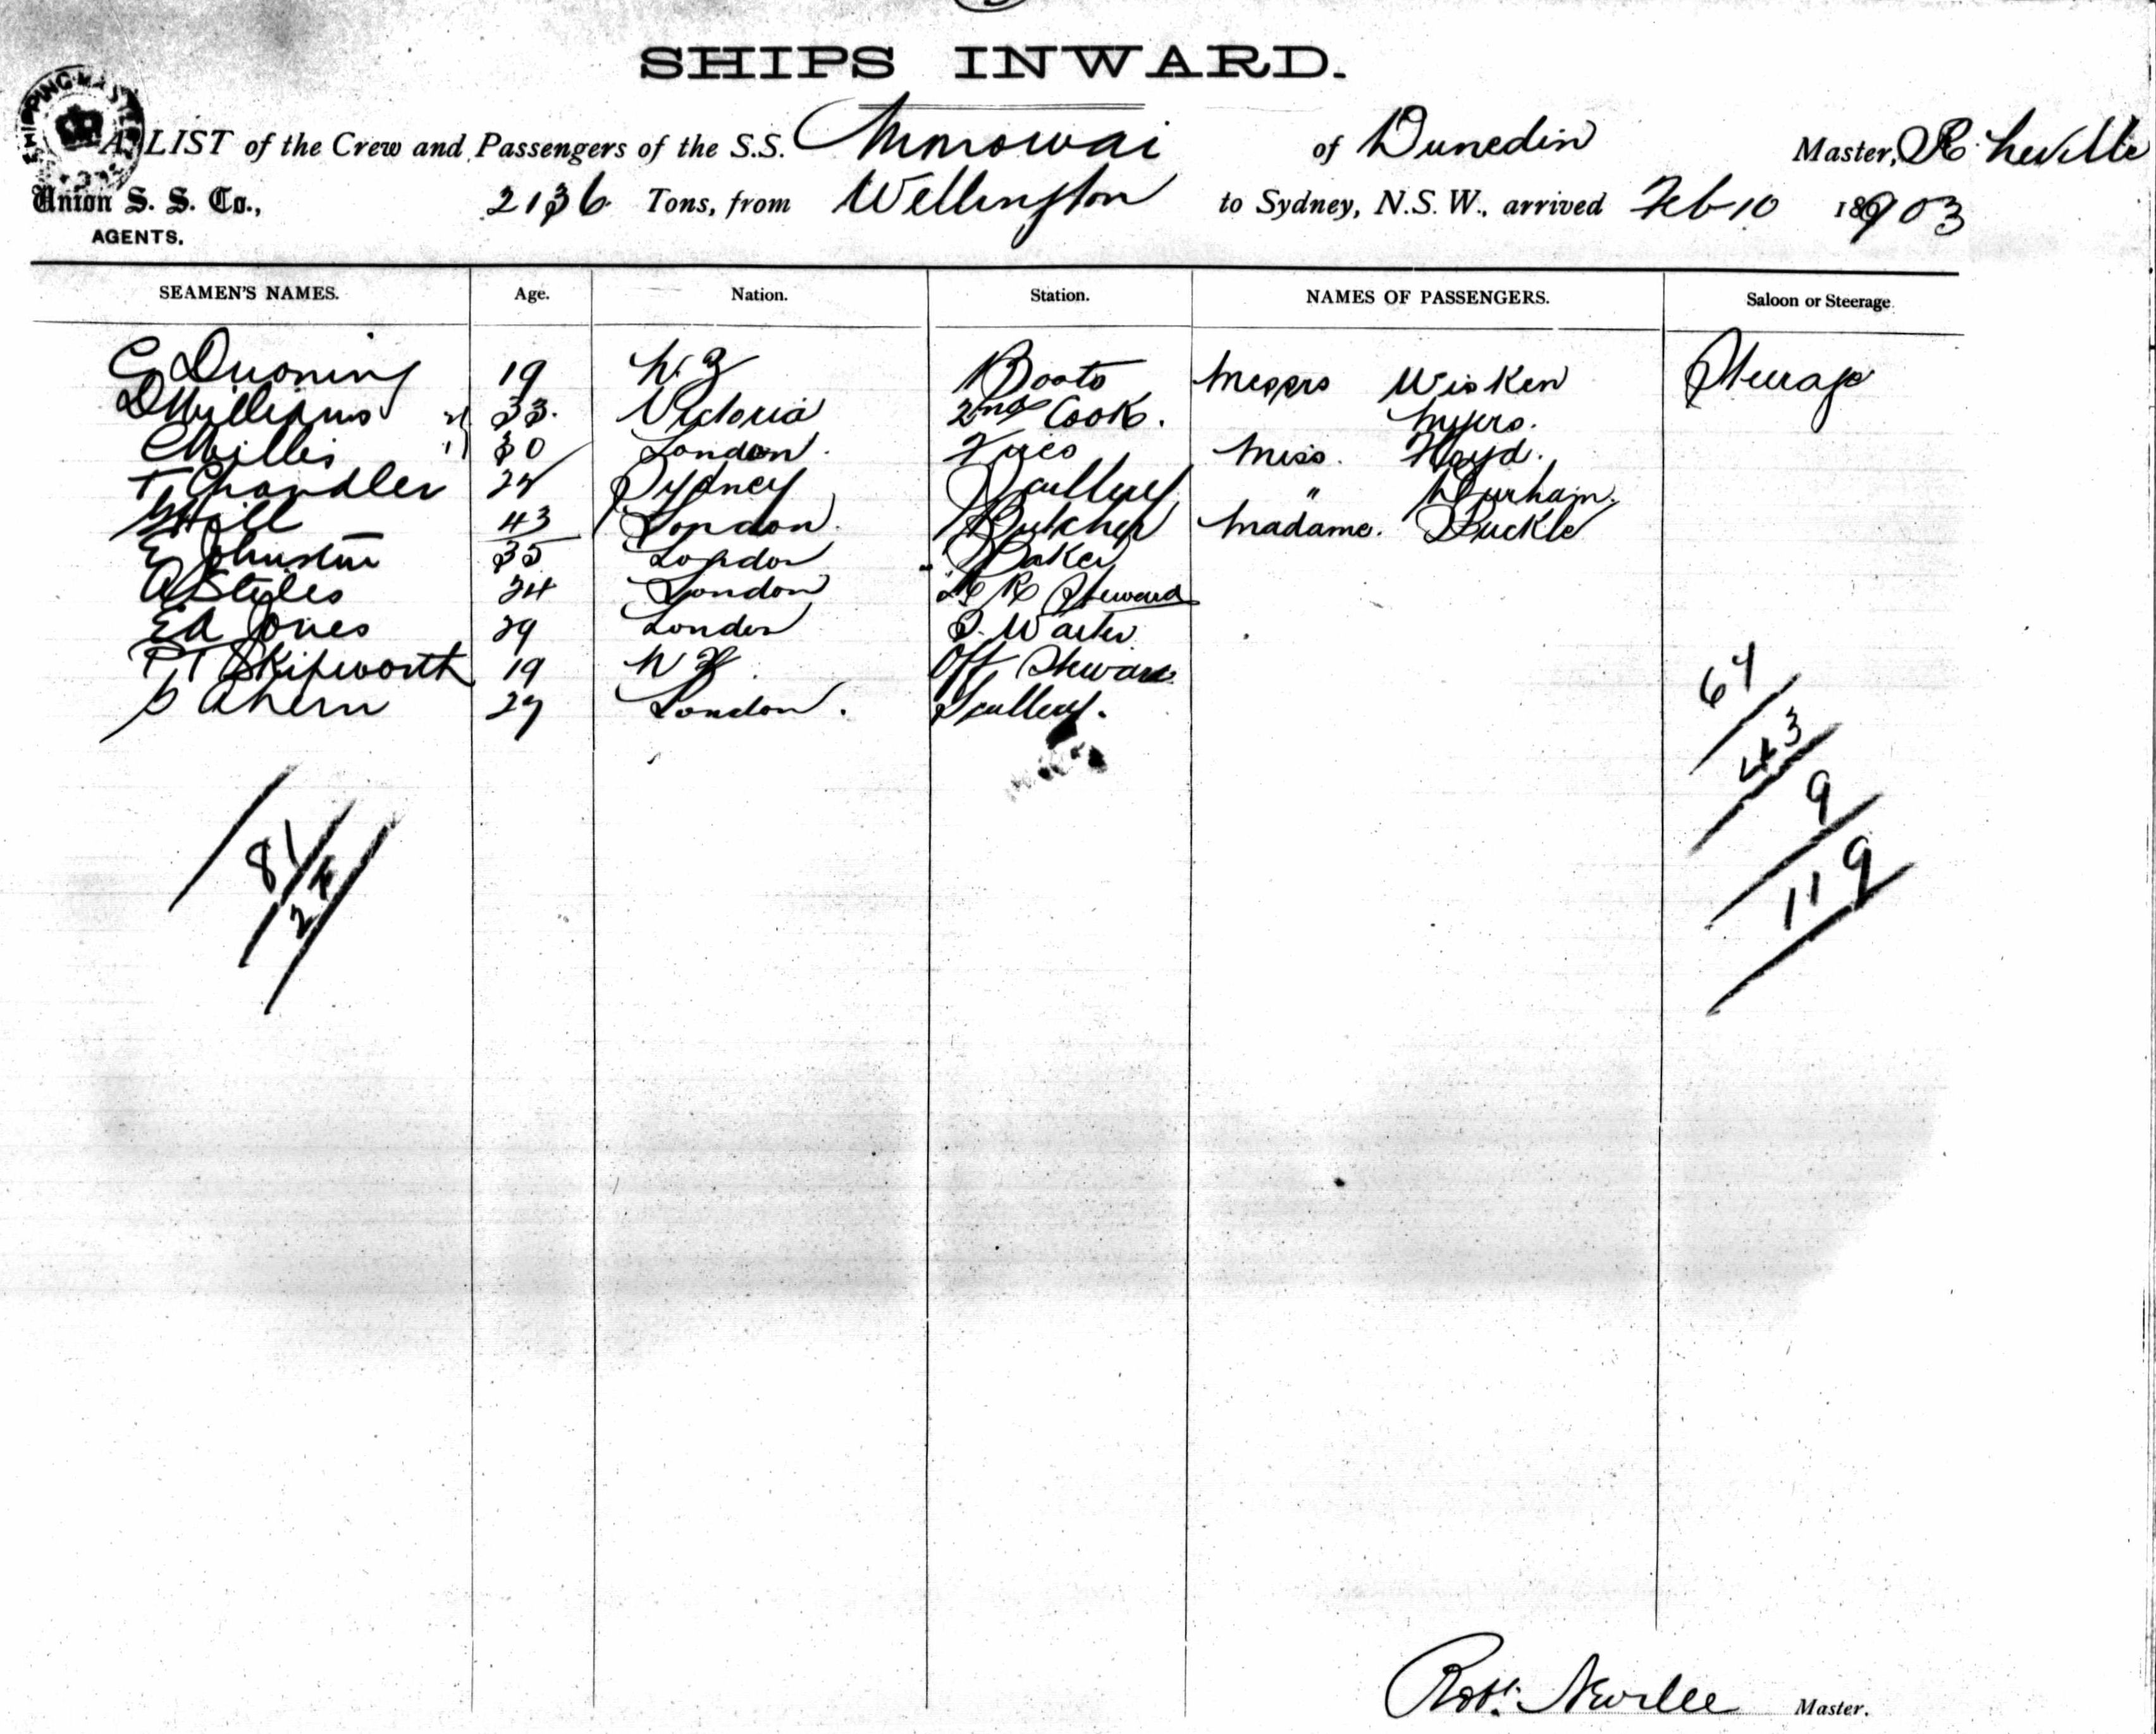 SHIPS INWARD.
A LIST of the Crew and Passengers of the S.S. Monowai of Dunedin Master, R. Neville
Union S. S. Co., 2136 Tons, from Wellington to Sydney, N.S.W., arrived Feb 10 1903
AGENTS.
SEAMEN'S NAMES. Age. Nation. Station. NAMES OF PASSENGERS. Saloon or Steerage
19 N.Z Boots Messrs Wisken Steerage
D Williams 33. Victoria 2nd Cook. Myers.
C Willis 30 London. Vices Miss. Floyd.
F. Chandler Sydney Scullery " Durham.
Hill 43 London. Butcher Madame. Buckle
E Johnston 35 London Baker
A Styles 24 London Steward
EA Jones 29 London S. Waiter
Skipworth 19 N Z. Off. Steward
Ahern 29 London. Scullery.
43
9
81
119
Robt. Neville Master.